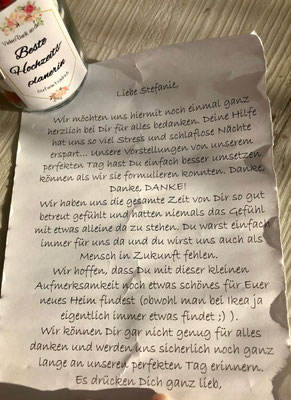 Beste
Hochzeits
planerin
Liebe Stefanie,
Wir möchten uns hiermit noch einmal ganz
herzlich bei Dir für alles bedanken. Deine Hilfe
hat uns so viel Stress und schlaflose Nächte
erspart... Unsere Vorstellungen von unserem
perfekten Tag hast Du einfach besser umsetzen
können als wir sie formulieren konnten. Danke,
Danke, DANKE!
Wir haben uns die gesamte Zeit von Dir so gut
betreut gefühlt und hatten niemals das Gefühl
mit etwas alleine da zu stehen. Du warst einfach
immer für uns da und du wirst uns auch als
Mensch in Zukunft fehlen.
Wir hoffen, dass Du mit dieser kleinen
Aufmerksamkeit noch etwas schönes für Euer
neues Heim findest (obwohl man bei Ikea ja
eigentlich immer etwas findet ;) ).
Wir können Dir gar nicht genug für alles
danken und werden uns sicherlich noch ganz
lange an unseren perfekten Tag erinnern.
Es drücken Dich ganz lieb,